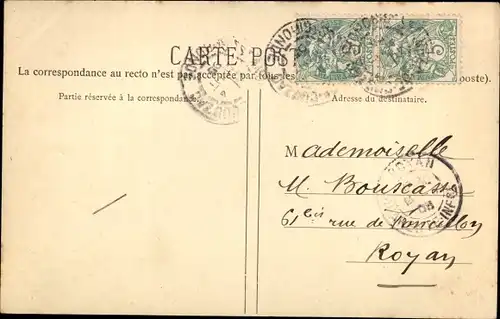 CARTE POST
La correspondance au recto n'est pas acceptée par tous les poste).
Partie réservée à la correspondance.
Adresse du destinataire.
Mademoiselle
M. Bouscasse
61 bis rue de
Royan
ROYAN
08
INFRE